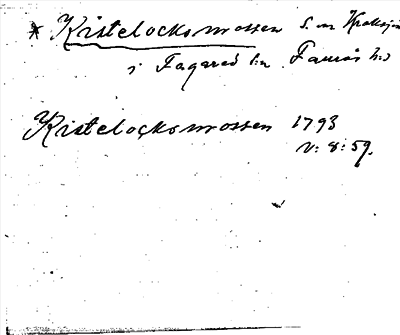 * Kistelocksmossen S. om Kroksjön
i Fagered sn Faurås hd
Kistelocksmossen 1793
v: 8: 59.